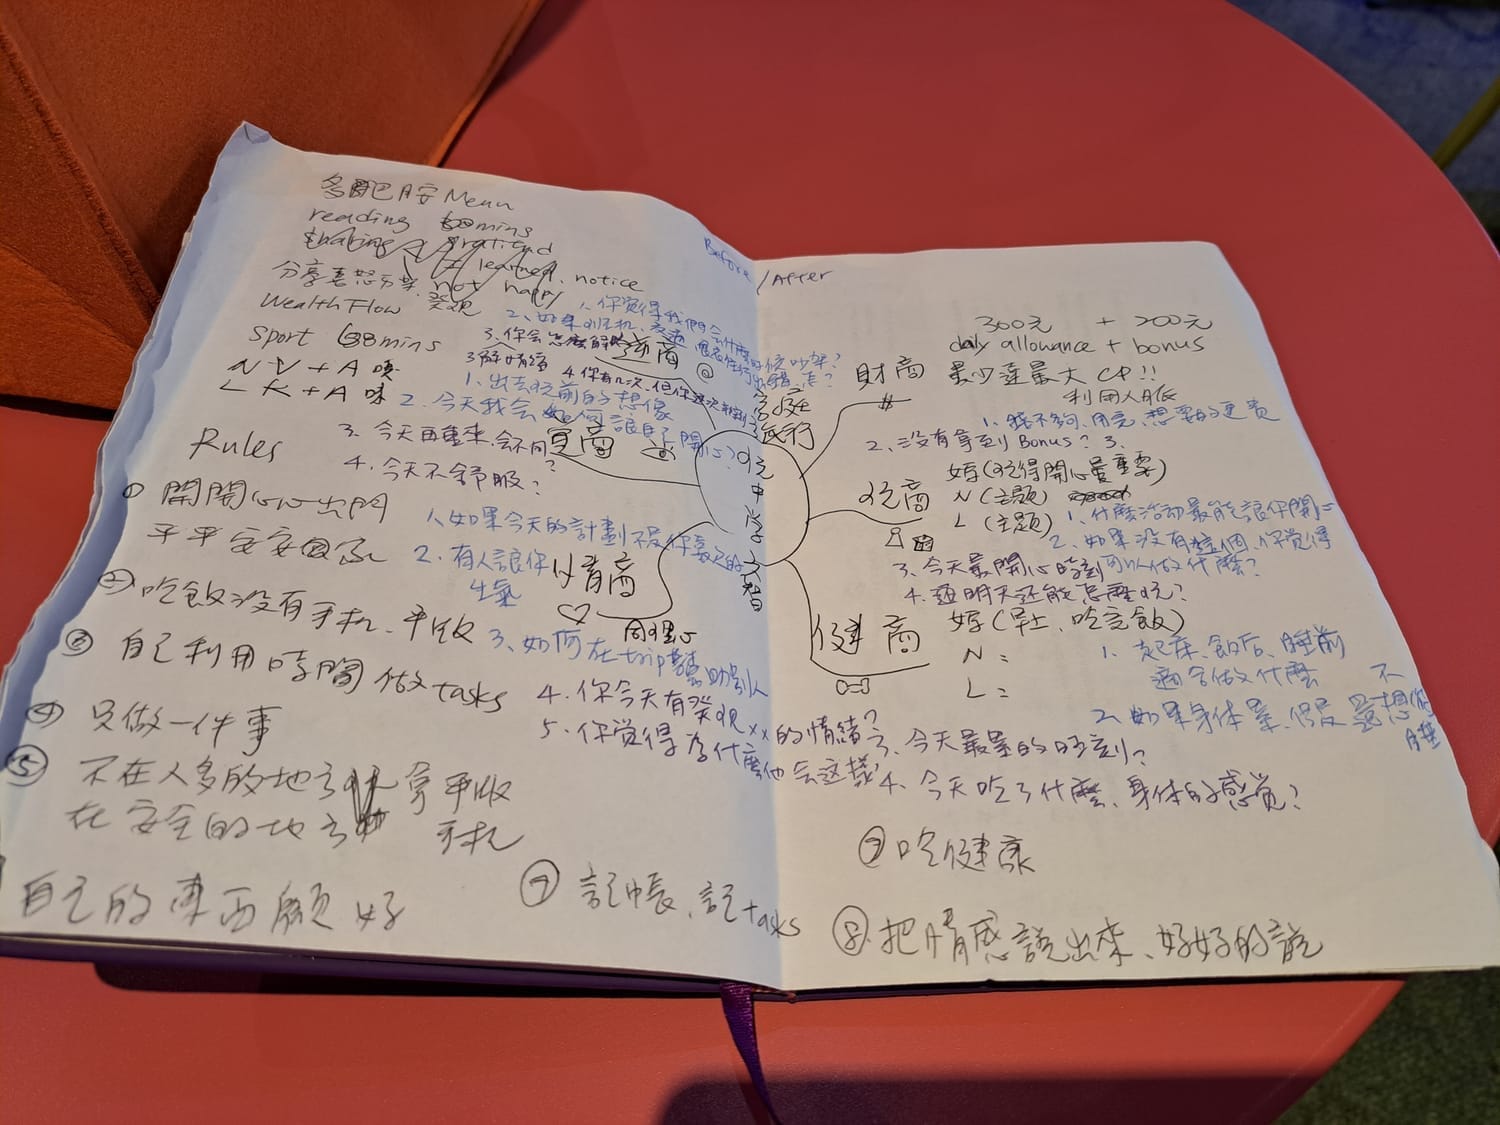 多肥胺 Menu
reading 30mins
gratitud
learned, notice
分享喜怒 not happy 發現
Wealth Flow
sport 30mins
N V + A 嗅
L K + A 味
Rules
① 開開心心出門
平平安安回家
② 吃飯沒有手机、平收
③ 自己利用時間做tasks
④ 只做一件事
⑤ 不在人多的地方 拿平收
在安全的地方 手机
自己的東西顧好
⑦ 記帳、記tasks
Before / After
1. 你覚得我們会什麼時候吵架?
2. 如果
3. 你会怎麼解
4. 你有几次,但你
逆商
1. 出去玩前的想像
2. 今天我会如何讓自己開心?
3. 今天再重來,会不同?
4. 今天不舒服?
1. 如果今天的計劃不是你喜欢的
2. 有人讓你
生氣
情商
同理心
3. 如何在trip幫助別人
4. 你今天有發現xx的情緒?
5. 你覚得為什麼他会这樣
玩中学
300元 + 200元
daily allowance + bonus
財商
最少達最大CP!!
利用人脈
1. 錢不夠用完,想要的更貴
2. 沒有拿到Bonus? 3.
玩商
婷(玩得開心最重要)
N (主題)
L (主題)
1. 什麼活動最能讓你開心
2. 如果沒有這個,你覚得
可以做什麼?
3. 今天最開心時刻
4. 還明天还能怎麼玩?
健商
婷(早士、吃完飯)
N =
L =
1. 起床、飯后、睡前
適合做什麼
2. 如果身体累,但是還想
不
3. 今天最累的時刻?
4. 今天吃了什麼、身体的感覚?
⑦ 吃健康
⑧ 把情感說出來、好好的說